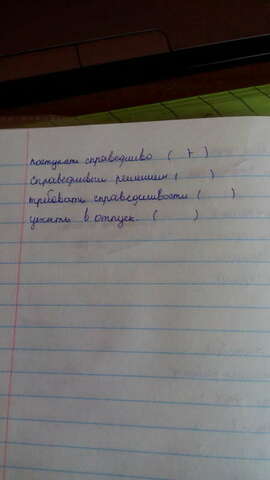 поступать справедливо ( + )
справедливый решении ( )
требовать справедливости ( )
уехать в отпуск. ( )